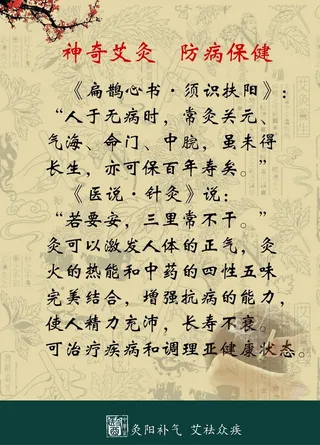 神奇艾灸 防病保健
《扁鹊心书·须识扶阳》:
“人于无病时,常灸关元、
气海、命门、中脘,虽未得
长生,亦可保百年寿矣。”
《医说·针灸》说:
“若要安,三里常不干。”
灸可以激发人体的正气,灸
火的热能和中药的四性五味
完美结合,增强抗病的能力,
使人精力充沛,长寿不衰。
可治疗疾病和调理亚健康状态。
灸阳补气 艾祛众疾